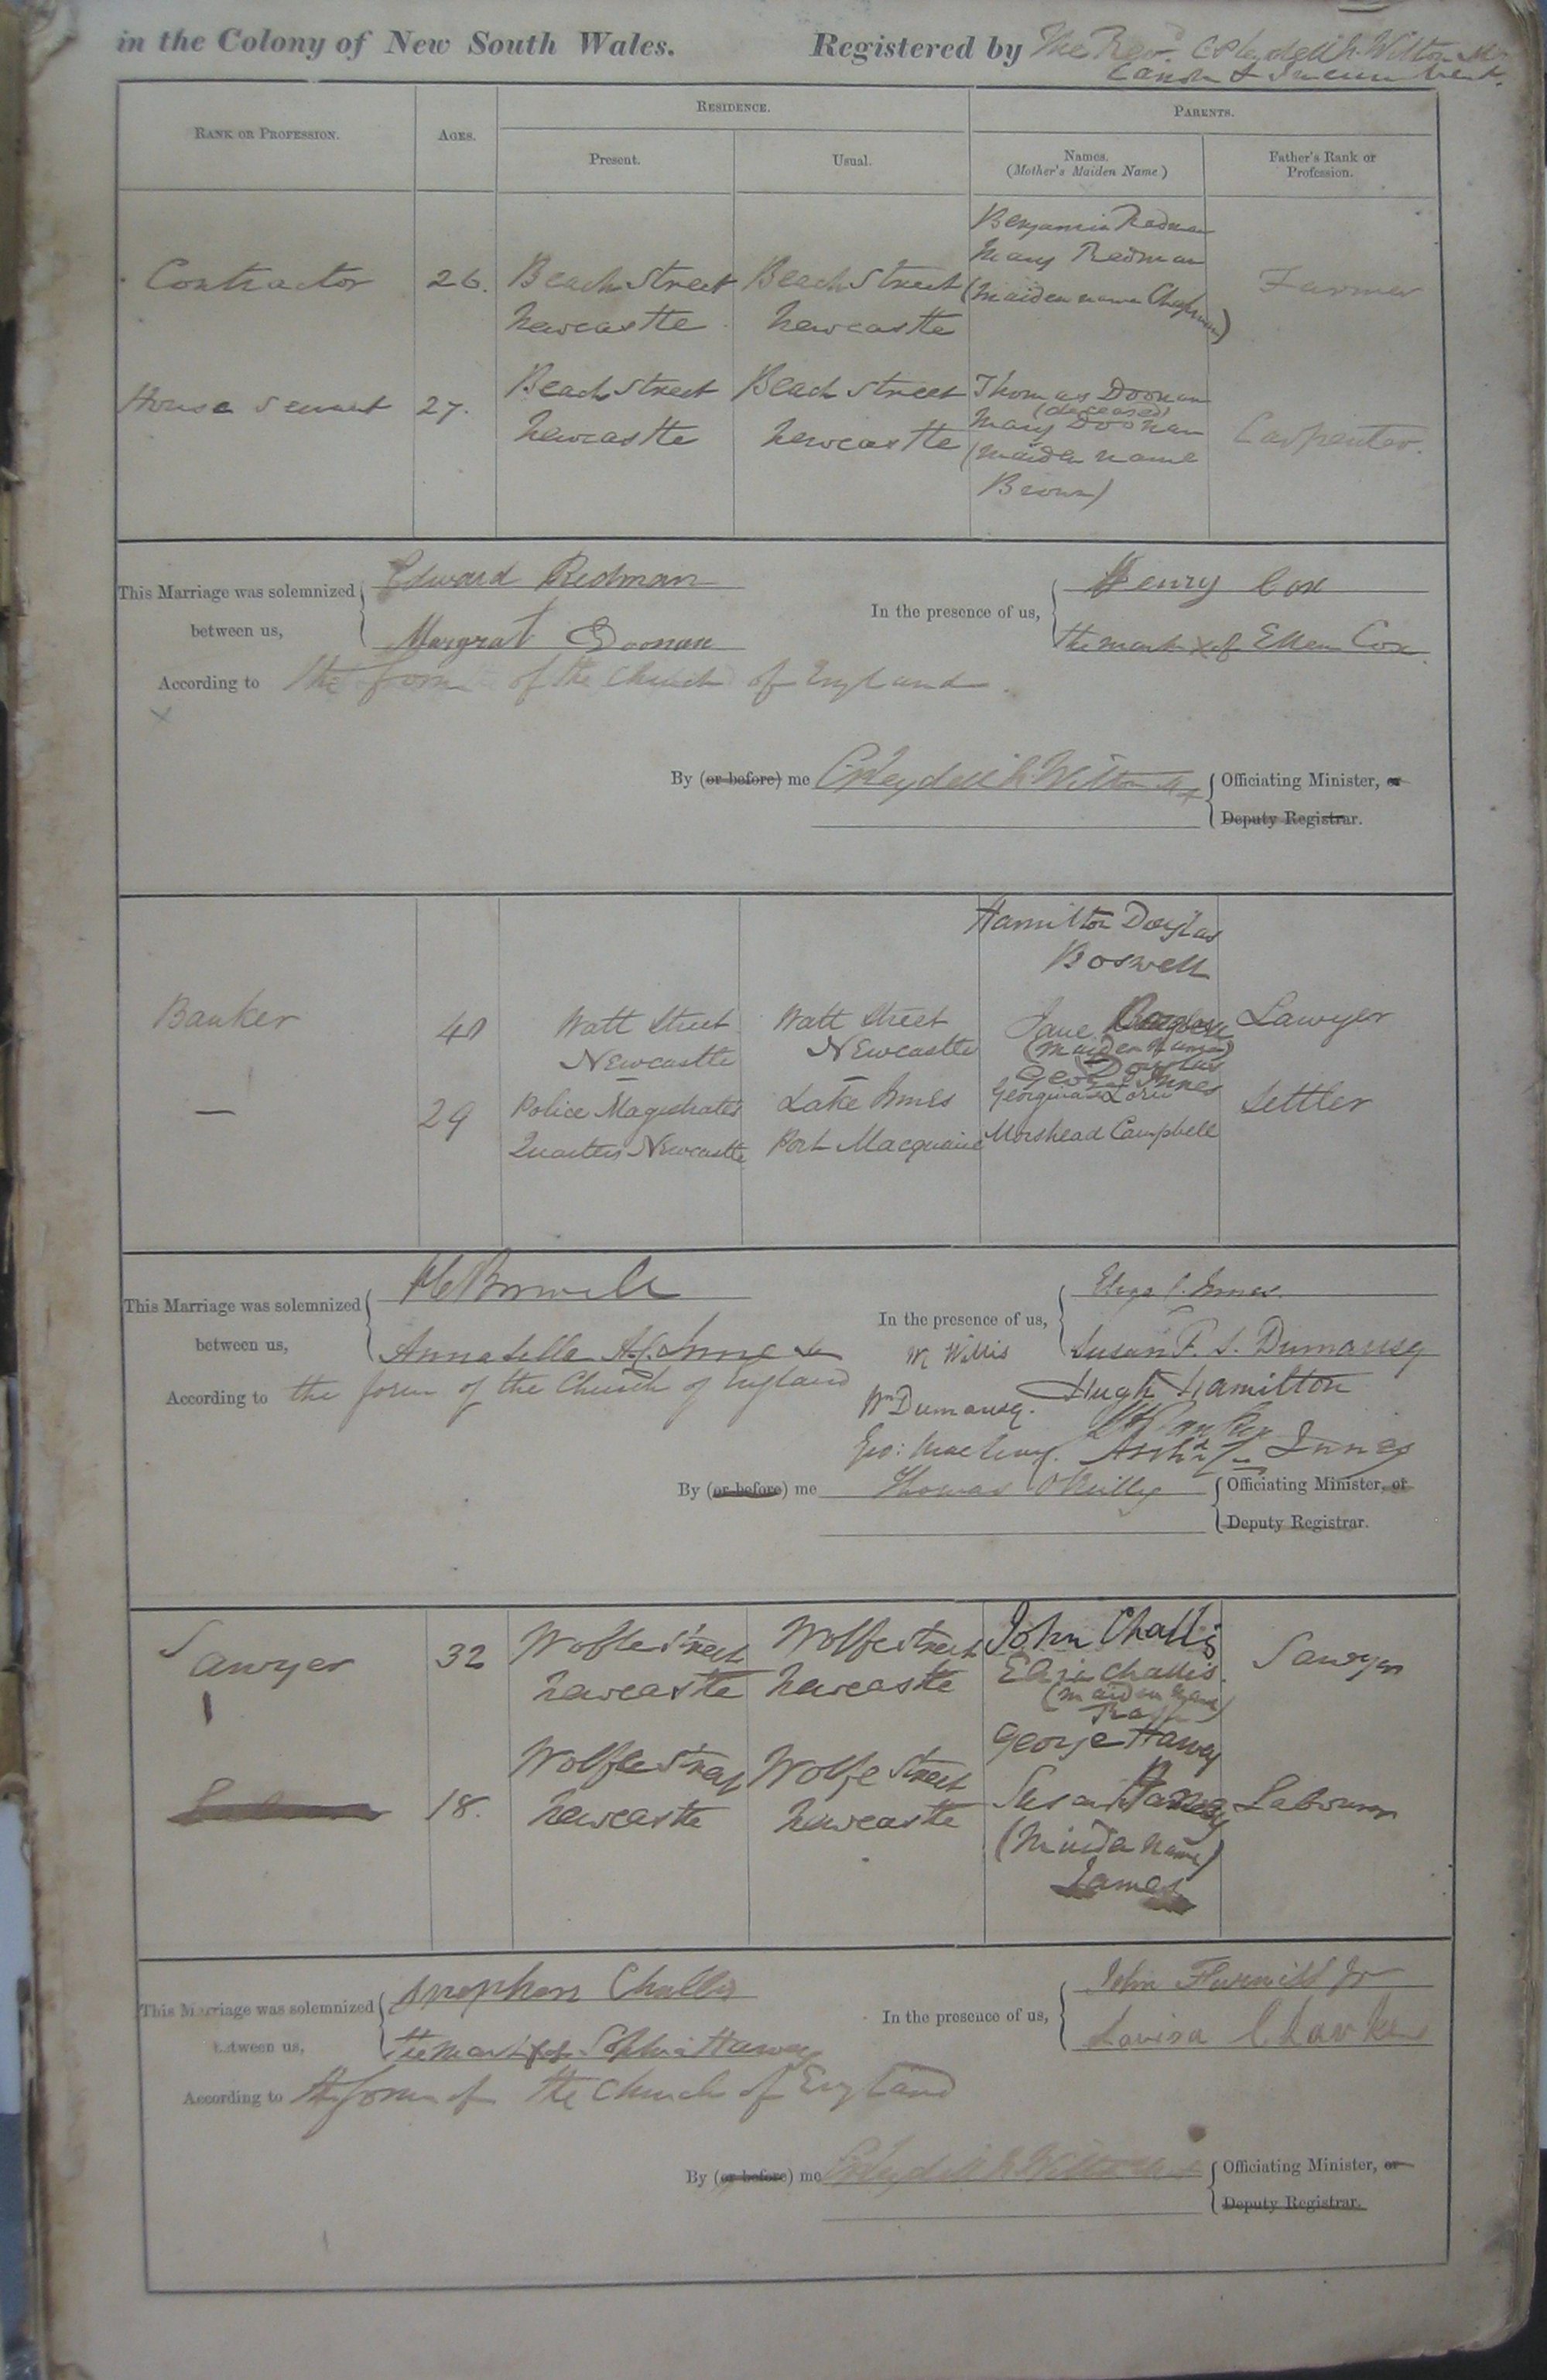 in the Colony of New South Wales. Registered by The Revd. C Pleydell N. Wilton M.
Canon & Incumbent.
RANK OR PROFESSION. AGES. RESIDENCE. PARENTS.
Present. Usual. Names. (Mother's Maiden Name) Father's Rank or Profession.
Benjamin Redman
Mary Redman
Contractor 26. Beach Street Beach Street (maiden name Chapman) Farmer
Newcastle Newcastle
House Servant 27. Beach Street Beach Street Thomas Doonan
(deceased)
Newcastle Newcastle Mary Doonan Carpenter.
(maiden name
Brown)
This Marriage was solemnized Edward Redman In the presence of us, Henry Cox
between us, Margrat Doonan the mark x of Ellen Cox
According to the form of the Church of England.
By (or before) me C Pleydell N. Wilton Officiating Minister, or
Deputy Registrar.
Hamilton Douglas
Boswell
Banker 40 Watt Street Watt Street Jane Lawyer
Newcastle Newcastle (Maiden Name)
Douglas
George Innes
— 29 Police Magistrate's Lake Innes Georgina Lorn Settler
Quarters Newcastle Port Macquarie Morshead Campbell
This Marriage was solemnized Boswell In the presence of us, Innes
between us, Annabella A.C. Innes W Willis Susan F. S. Dumaresq
According to the form of the Church of England Wm Dumaresq. Hugh Hamilton
Geo: Archd Innes
By (or before) me Thomas O'Reilly Officiating Minister, or
Deputy Registrar.
Sawyer 32 Wolfe Street Wolfe Street John Challis Sawyer
Newcastle Newcastle Challis
(maiden name)
George Harvey
18. Wolfe Street Wolfe Street Susan Harvey Labourer
Newcastle Newcastle (Maiden Name)
James
This Marriage was solemnized Stephen Challis In the presence of us, John
between us, the mark x of Sophia Harvey Louisa Clarke
According to the form of the Church of England
By (or before) me C Pleydell N Wilton Officiating Minister, or
Deputy Registrar.